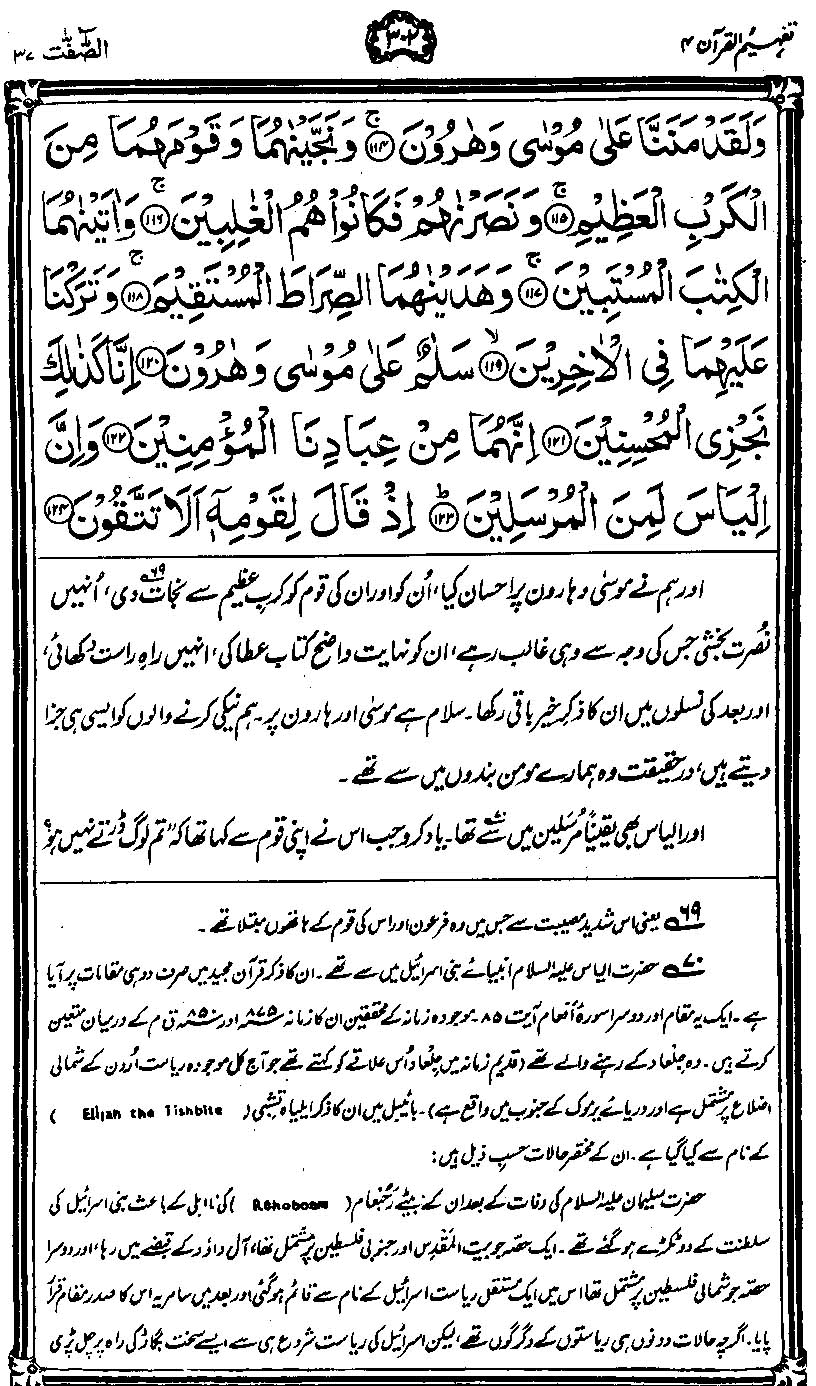 تفہیم القرآن ۴
۳۰۲
الصّٰٓفّٰت ۳۷
وَلَقَدْ مَنَنَّا عَلٰى مُوْسٰى وَهٰرُوْنَ ۝۱۱۴ۚ وَنَجَّيْنٰهُمَا وَقَوْمَهُمَا مِنَ
الْكَرْبِ الْعَظِيْمِ ۝۱۱۵ۚ وَنَصَرْنٰهُمْ فَكَانُوْا هُمُ الْغٰلِبِيْنَ ۝۱۱۶ۚ وَاٰتَيْنٰهُمَا
الْكِتٰبَ الْمُسْتَبِيْنَ ۝۱۱۷ۚ وَهَدَيْنٰهُمَا الصِّرَاطَ الْمُسْتَقِيْمَ ۝۱۱۸ۚ وَتَرَكْنَا
عَلَيْهِمَا فِى الْاٰخِرِيْنَ ۝۱۱۹ۙ سَلٰمٌ عَلٰى مُوْسٰى وَهٰرُوْنَ ۝۱۲۰ اِنَّا كَذٰلِكَ
نَجْزِى الْمُحْسِنِيْنَ ۝۱۲۱ اِنَّهُمَا مِنْ عِبَادِنَا الْمُؤْمِنِيْنَ ۝۱۲۲ وَاِنَّ
اِلْيَاسَ لَمِنَ الْمُرْسَلِيْنَ ۝۱۲۳ؕ اِذْ قَالَ لِقَوْمِهٖٓ اَلَا تَتَّقُوْنَ ۝۱۲۴
اور ہم نے موسیٰ و ہارون پر احسان کیا، اُن کو اور ان کی قوم کو کربِ عظیم سے نجات دی۶۹، اُنہیں
نُصرت بخشی جس کی وجہ سے وہی غالب رہے، ان کو نہایت واضح کتاب عطا کی، انہیں راہِ راست دکھائی،
اور بعد کی نسلوں میں ان کا ذکرِ خیر باقی رکھا۔ سلام ہے موسیٰ اور ہارون پر۔ ہم نیکی کرنے والوں کو ایسی ہی جزا
دیتے ہیں، درحقیقت وہ ہمارے مومن بندوں میں سے تھے۔
اور الیاس بھی یقیناً مُرسَلین میں سے تھا۷۰۔ یاد کرو جب اس نے اپنی قوم سے کہا تھا کہ ”تم لوگ ڈرتے نہیں ہو؟
۶۹ یعنی اس شدید مصیبت سے جس میں وہ فرعون اور اس کی قوم کے ہاتھوں مبتلا تھے۔
۷۰ حضرت الیاس علیہ السلام انبیائے بنی اسرائیل میں سے تھے۔ ان کا ذکر قرآن مجید میں صرف دو ہی مقامات پر آیا
ہے۔ ایک یہ مقام اور دوسرا سورۂ اَنعام آیت ۸۵۔ موجودہ زمانہ کے محققین ان کا زمانہ ۸۷۵ اور ۸۵۰ ق م کے درمیان متعین
کرتے ہیں۔ وہ جِلعاد کے رہنے والے تھے (قدیم زمانہ میں جلعاد اُس علاقے کو کہتے تھے جو آج کل موجودہ ریاست اُردن کے شمالی
اضلاع پر مشتمل ہے اور دریائے یرموک کے جنوب میں واقع ہے)۔ بائیبل میں ان کا ذکر ایلیاہ تِشبی (Elijah the Tishbite)
کے نام سے کیا گیا ہے۔ ان کے مختصر حالات حسبِ ذیل ہیں:
حضرت سلیمان علیہ السلام کی وفات کے بعد ان کے بیٹے رَحُبعام (Rehoboam) کی نااہلی کے باعث بنی اسرائیل کی
سلطنت کے دو ٹکڑے ہو گئے تھے۔ ایک حصّہ جو بیت المَقْدِس اور جنوبی فلسطین پر مشتمل تھا، آل داؤد کے قبضے میں رہا، اور دوسرا
حصّہ جو شمالی فلسطین پر مشتمل تھا اس میں ایک مستقل ریاست اسرائیل کے نام سے قائم ہو گئی اور بعد میں سامریہ اس کا صدر مقام قرار
پایا۔ اگرچہ حالات دونوں ہی ریاستوں کے دگرگوں تھے، لیکن اسرائیل کی ریاست شروع ہی سے ایسے سخت بگاڑ کی راہ پر چل پڑی